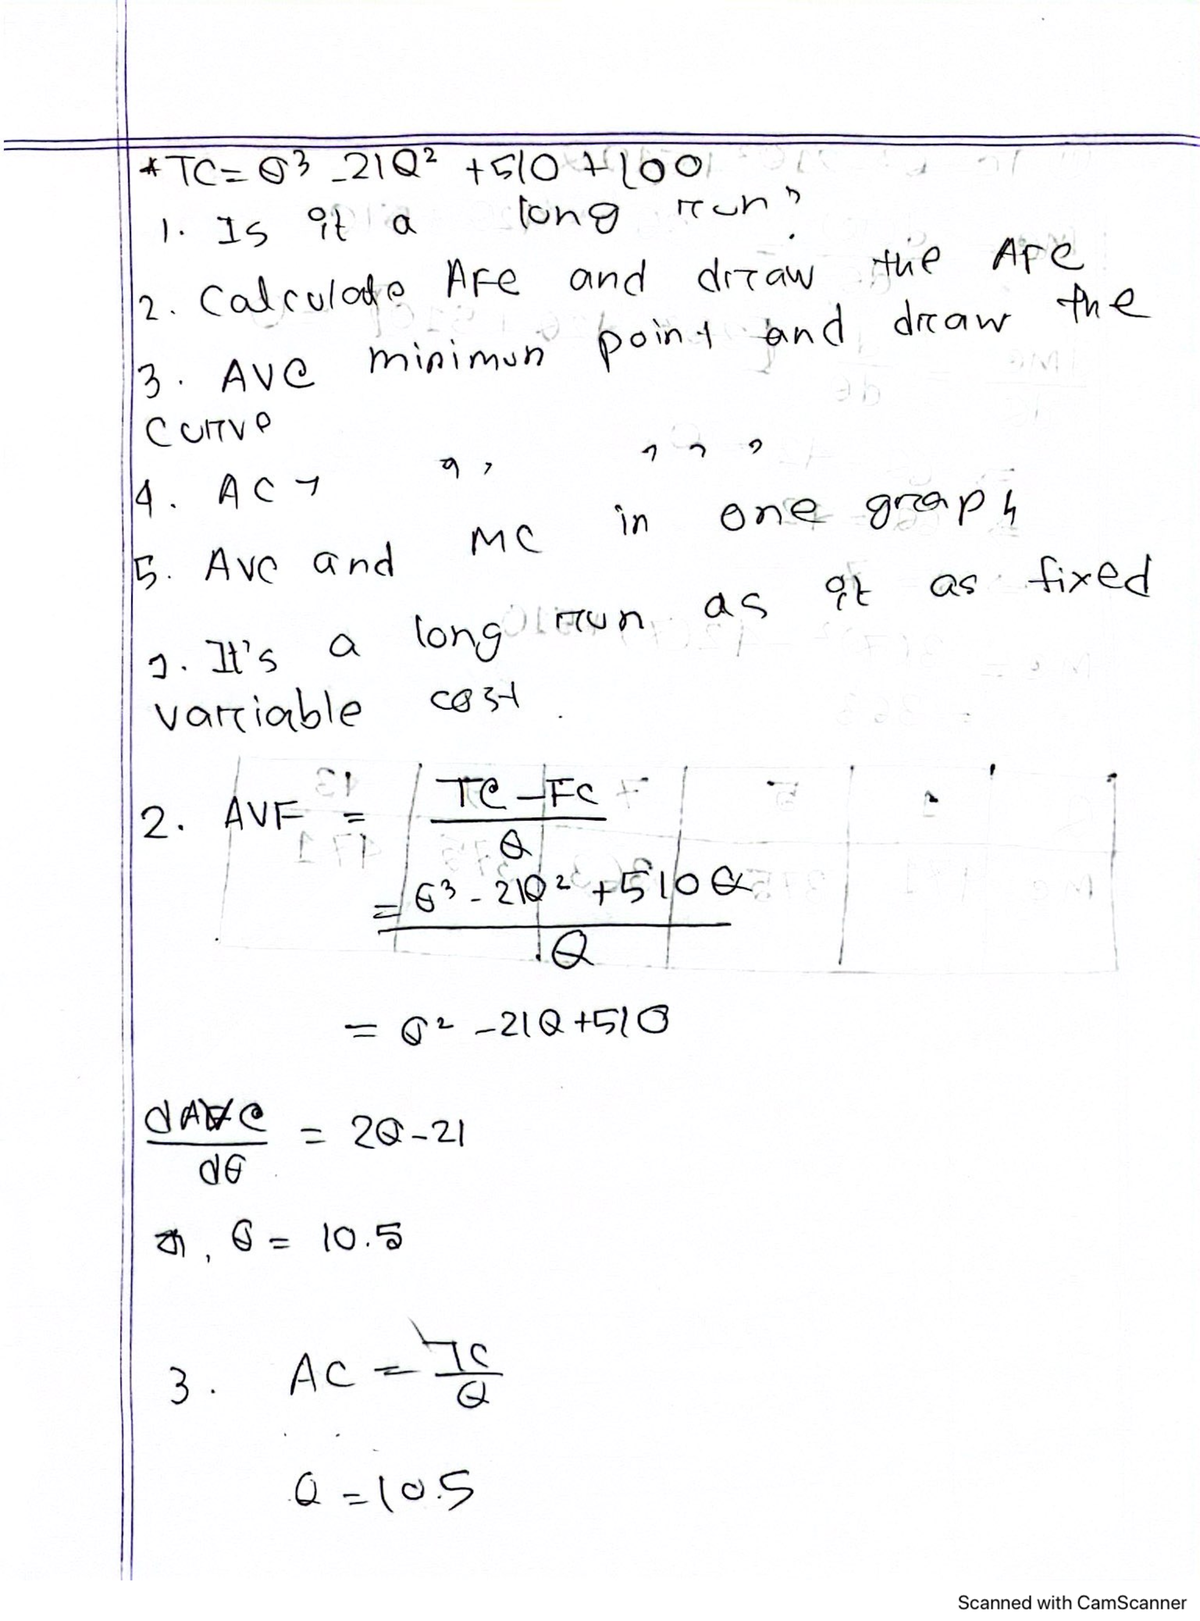 *TC= Q3 -21Q2 +510 +100
1. Is it a long run?
2. Calculate AFC and draw the AFC
3. AVC minimun point and draw the
curve
4. AC → " " " "
5. AVC and MC in one graph
1. It's a long run as it as fixed
variable cost.
2. AVF = TC-FC
Q
= Q3 - 21Q2 +510Q
Q
= Q2 -21Q+510
dAVC
dQ
= 2Q-21
Q= 10.5
3. AC = TC
Q
Q =10.5
Scanned with CamScanner